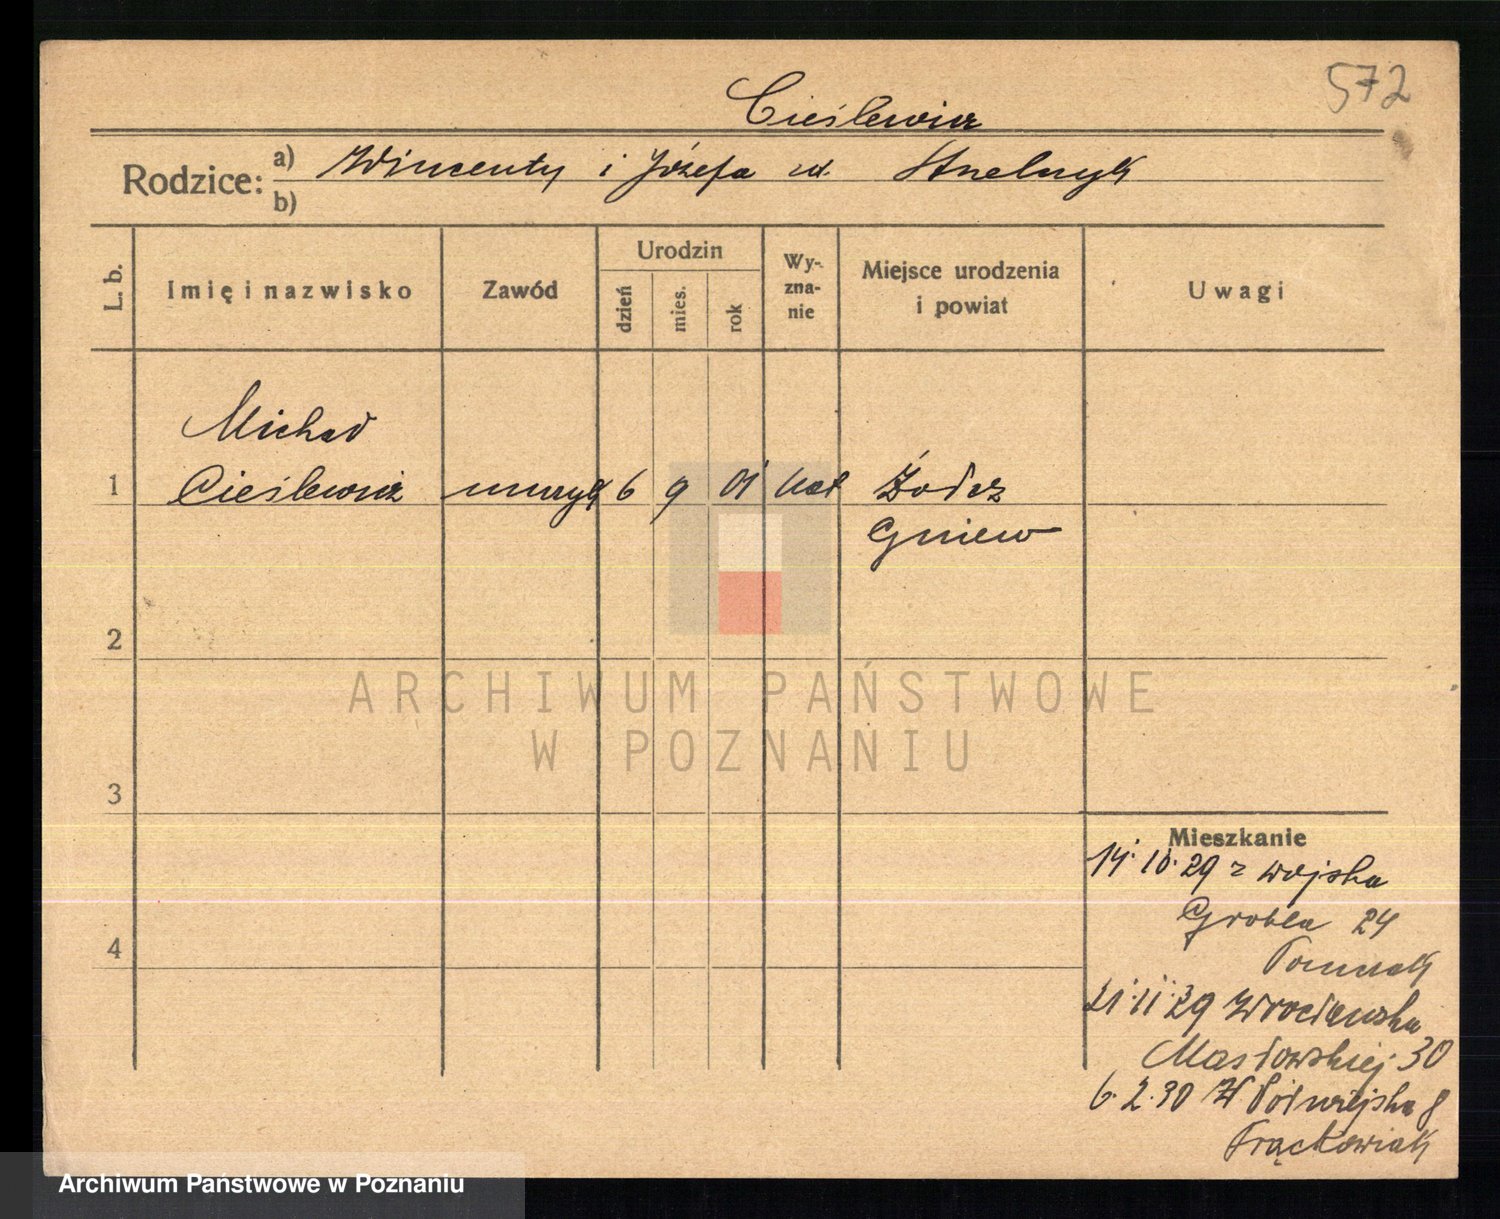 572
Cieślewicz
Rodzice: a) Wincenty i Józefa zd.
b)
L. b.
Imię i nazwisko
Zawód
Urodzin
dzień
mies.
rok
Wy-
zna-
nie
Miejsce urodzenia
i powiat
Uwagi
Michał
1 Cieślewicz muzyk 6 9 01 kat
Gniew
2
ARCHIWUM PAŃSTWOWE
W POZNANIU
3
Mieszkanie
14.10.29 z wojska
Grobla 24
4
21.11.29 Wrocławska
Masłowskiej 30
6.2.30 Półwiejska 8
Frąckowiak
Archiwum Państwowe w Poznaniu